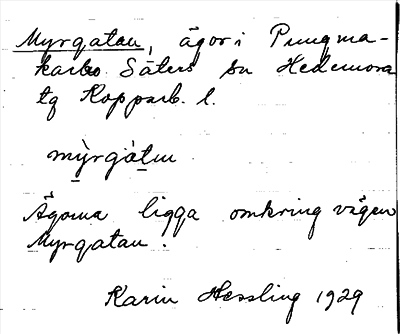 Myrgatan, ägor i Pungma-
karbo Säters sn Hedemora
tg Kopparb. l.
mỳrgàtɩn
Ägorna ligga omkring vägen
Myrgatan.
Karin Hessling 1929